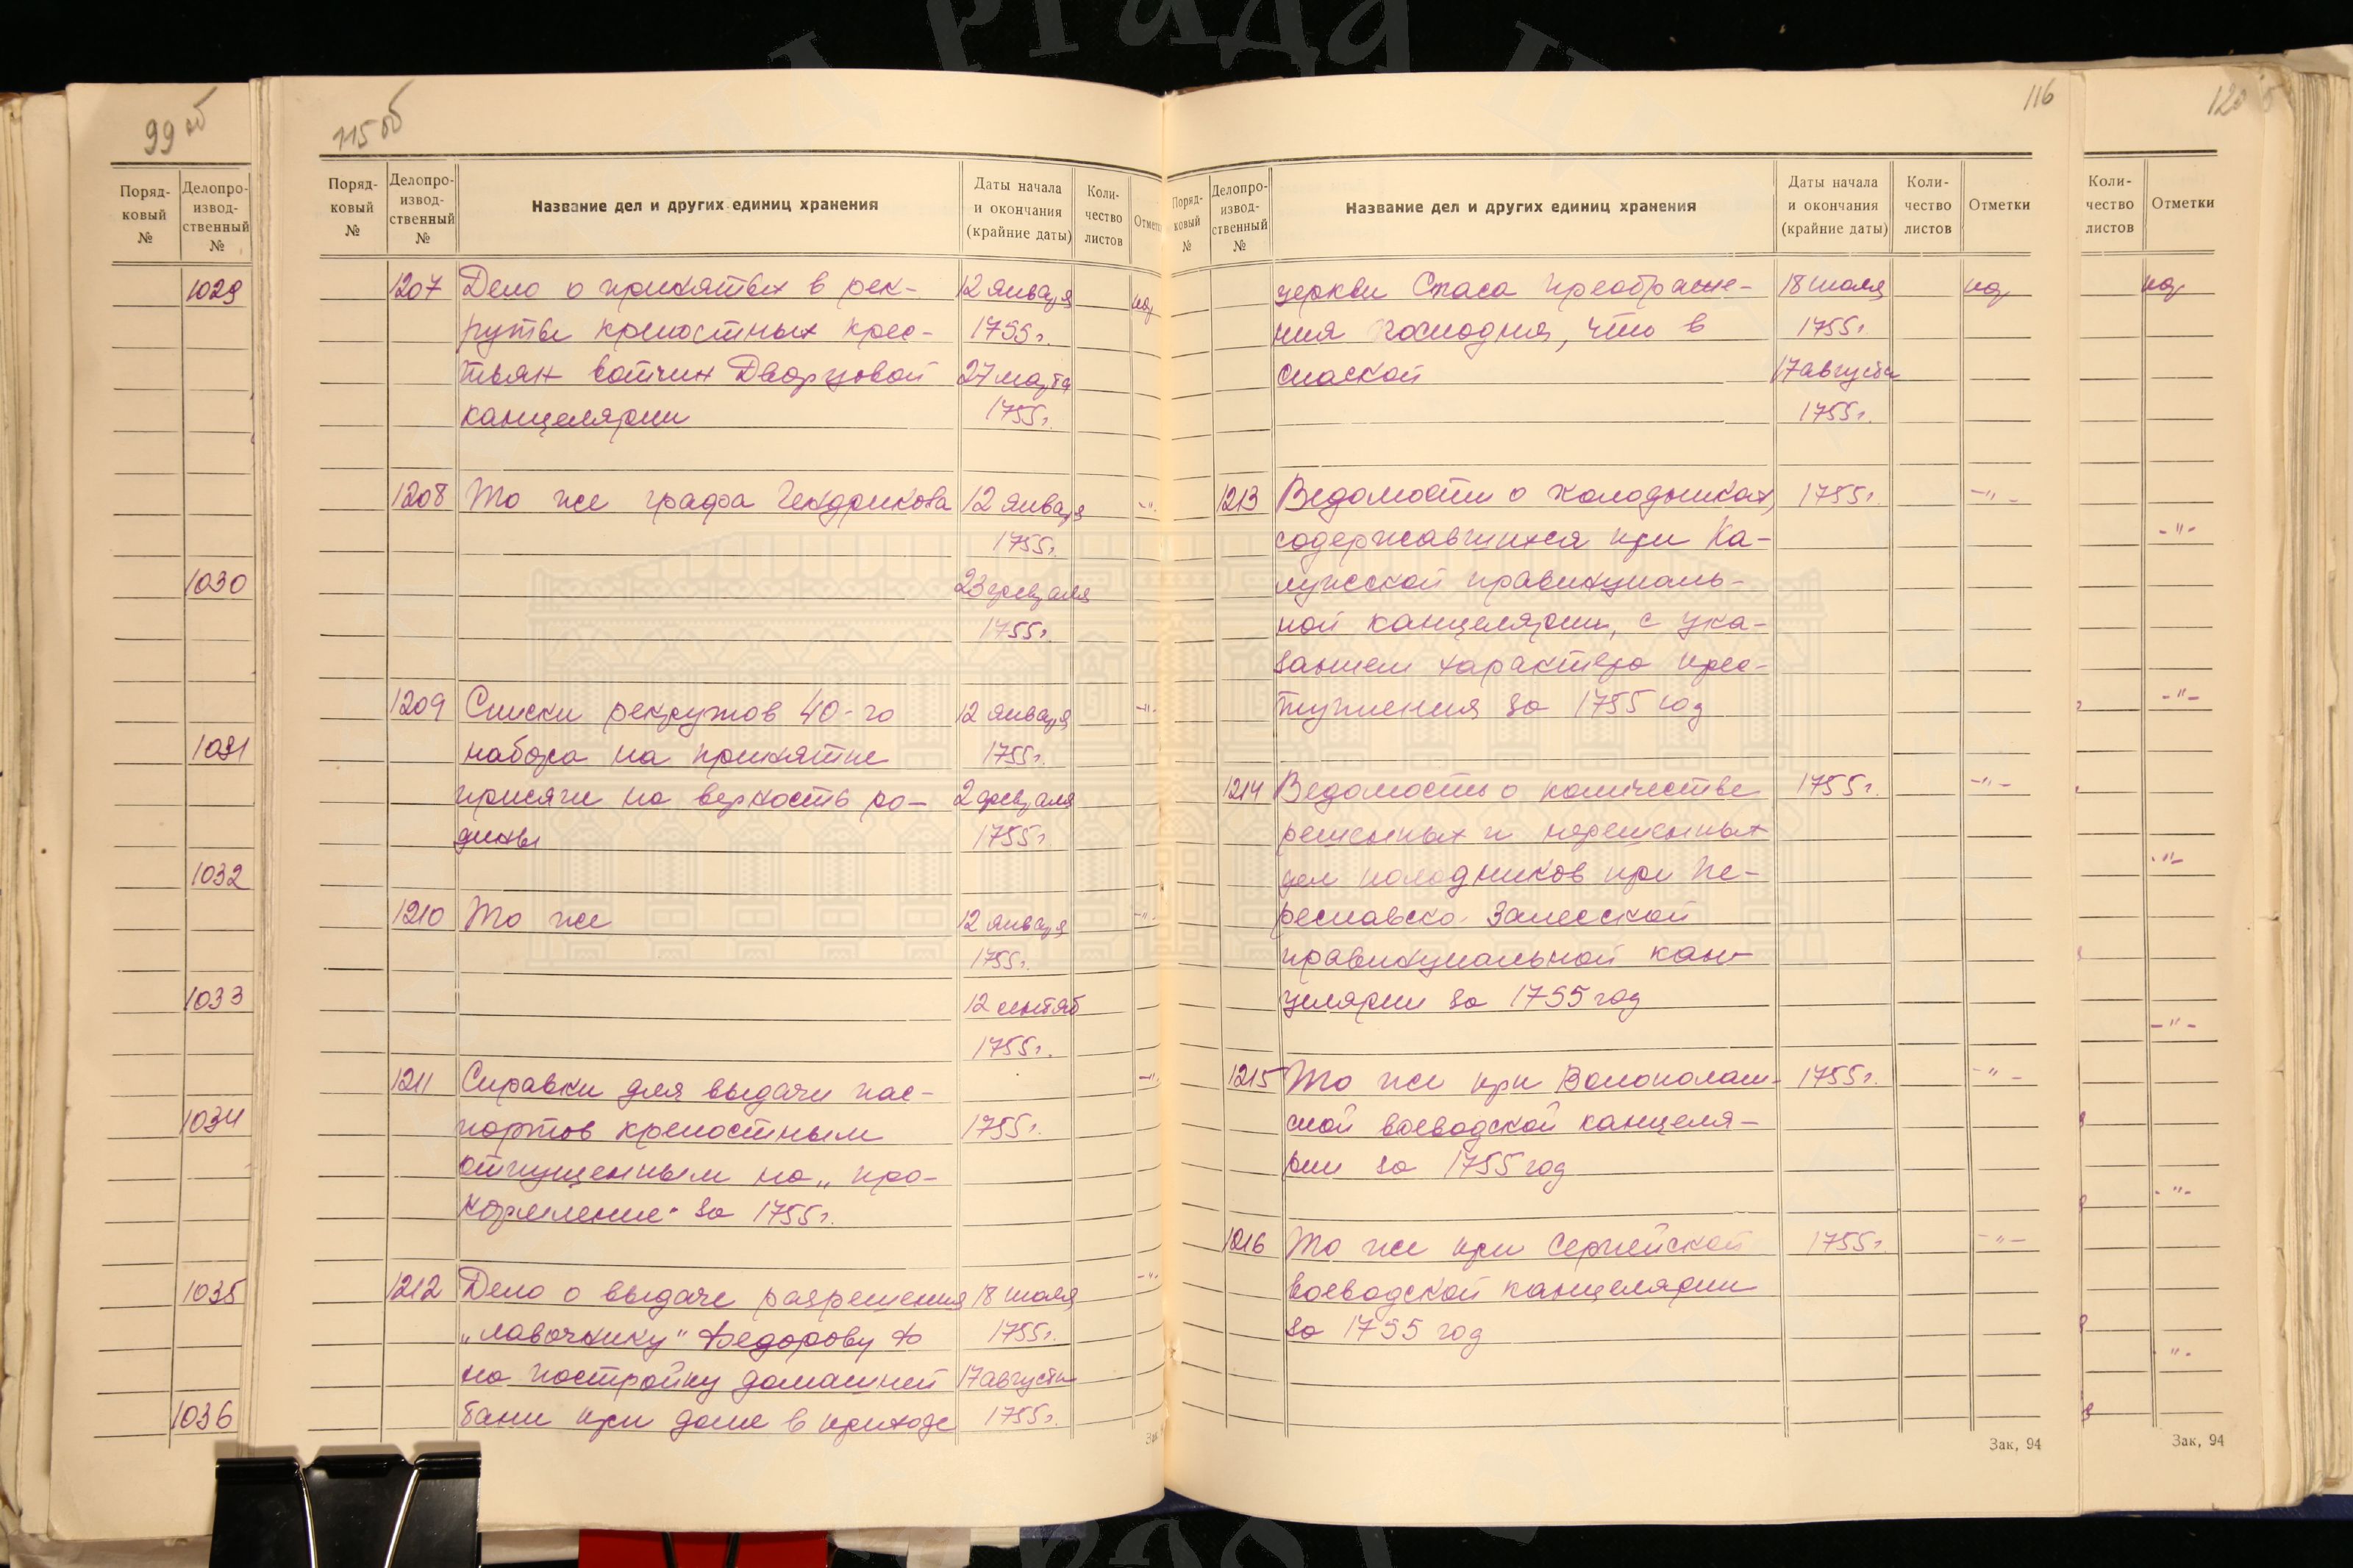 99 об
Поряд-
ковый
№
Делопро-
извод-
ственный
№
1029
1030
1031
1032
1033
1034
1035
1036
115 об
Поряд-
ковый
№
Делопро-
извод-
ственный
№
Название дел и других единиц хранения
Даты начала
и окончания
(крайние даты)
Коли-
чество
листов
1207 Дело о принятых в рек- 12 января
руты крепостных крес- 1755 г.
тьян вотчин Дворцовой 27 марта
канцелярии 1755 г.
1208 То же графа Гендрикова 12 января -"-
1755 г.
23 февраля
1755 г.
1209 Списки рекрутов 40-го 12 января -"-
набора на принятие 1755 г.
присяги на верность ро- 2 февраля
дины 1755 г.
1210 То же 12 января -"-
1755 г.
12 сентяб
1755 г.
1211 Справки для выдачи пас- -"-
портов крепостным 1755 г.
отпущенным на „про-
кормление" за 1755 г.
1212 Дело о выдаче разрешения 18 июля -"-
„лавочнику" Федорову Ф 1755 г.
на постройку домашней 17 августа
бани при доме в приходе 1755 г.
116
Поряд-
ковый
№
Делопро-
извод-
ственный
№
Название дел и других единиц хранения
Даты начала
и окончания
(крайние даты)
Коли-
чество
листов
Отметки
церкви Спаса Преображе- 18 июля
ния Господня, что в 1755 г.
Спаской 17 августа
1755 г.
1213 Ведомости о колодниках, 1755 г. -"-
содержавшихся при Ка-
лужской правинциаль-
ной канцелярии, с ука-
занием характера прес-
тупления за 1755 год
1214 Ведомость о количестве 1755 г. -"-
решенных и нерешенных
дел колодников при Пе-
реславско-Залесской
правинциальной кан-
целярии за 1755 год
1215 То же при Волоколам- 1755 г. -"-
ской воеводской канцеля-
рии за 1755 год
1216 То же при Серпейской 1755 г. -"-
воеводской канцелярии
за 1755 год
Зак, 94
Коли-
чество
листов
Отметки
-"-
-"-
-"-
-"-
-"-
-"-
Зак, 94